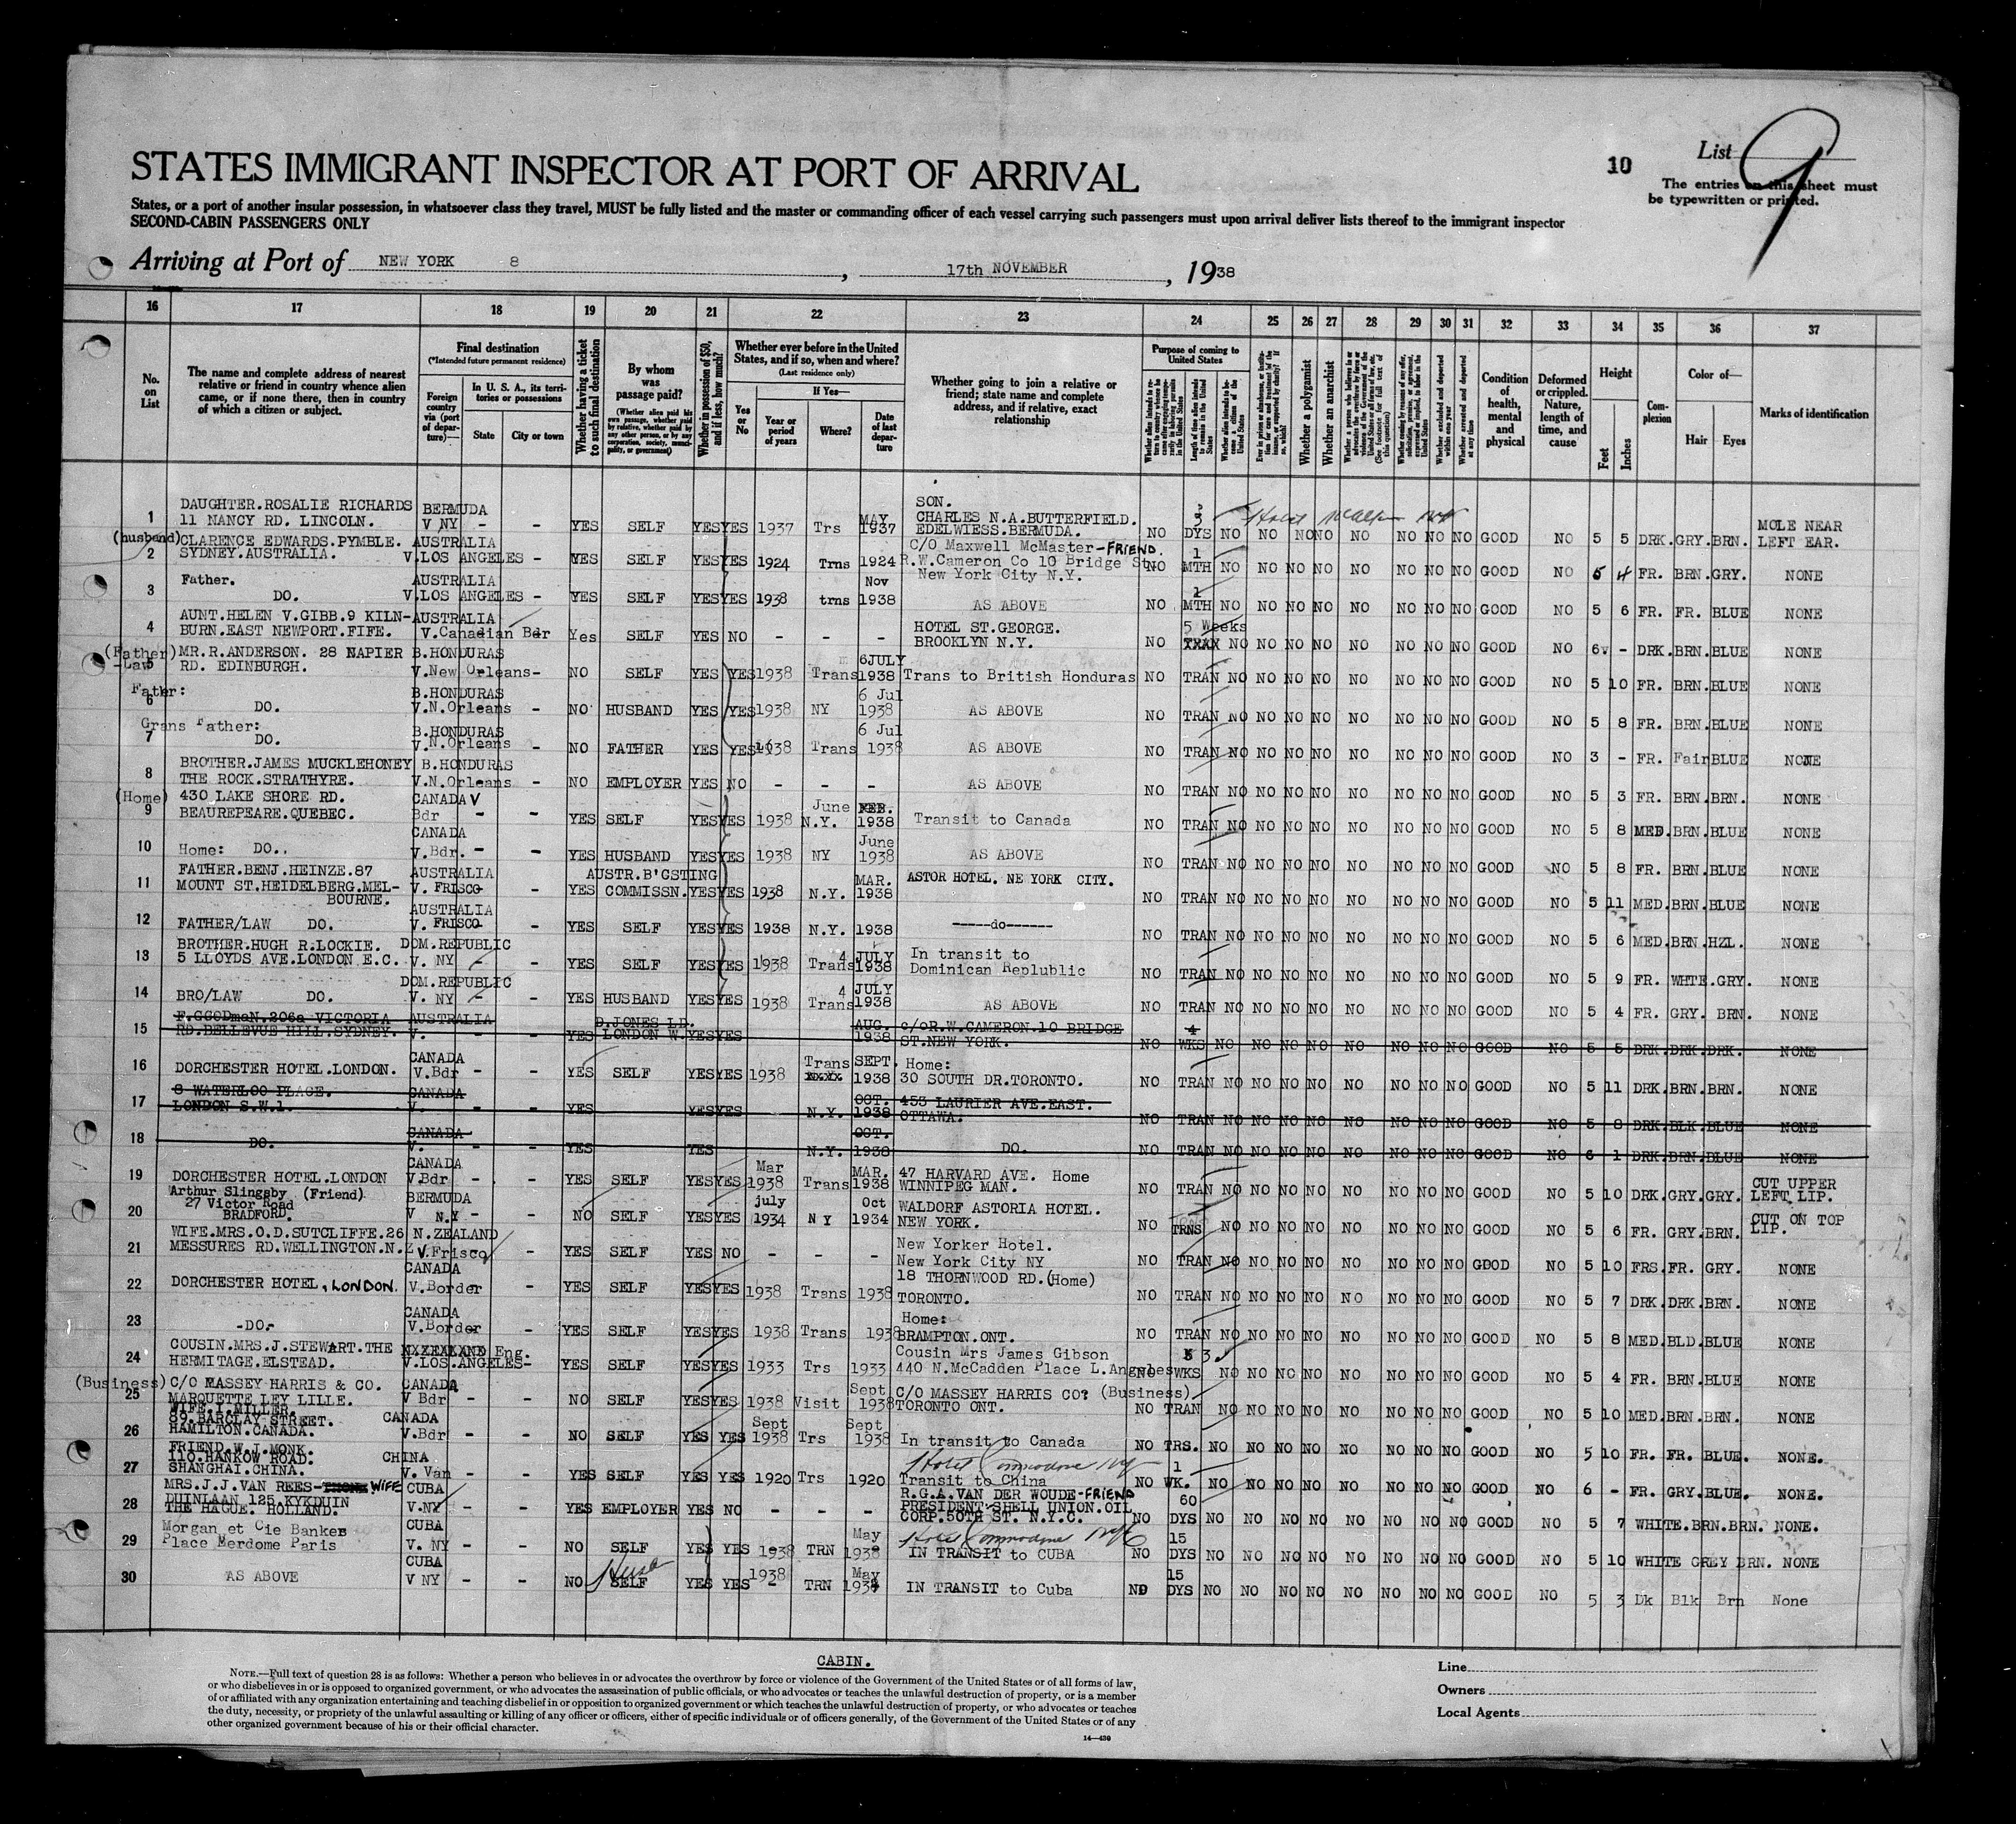 10
List 9
STATES IMMIGRANT INSPECTOR AT PORT OF ARRIVAL
The entries on this sheet must
be typewritten or printed.
States, or a port of another insular possession, in whatsoever class they travel, MUST be fully listed and the master or commanding officer of each vessel carrying such passengers must upon arrival deliver lists thereof to the immigrant inspector
SECOND-CABIN PASSENGERS ONLY
Arriving at Port of NEW YORK 8, 17th NOVEMBER, 1938
16 17 18 19 20 21 22 23 24 25 26 27 28 29 30 31 32 33 34 35 36 37
No. on List
The name and complete address of nearest relative or friend in country whence alien came, or if none there, then in country of which a citizen or subject.
Final destination
(*Intended future permanent residence)
Foreign country via (port of departure)—
In U. S. A., its territories or possessions
State
City or town
Whether having a ticket to such final destination
By whom was passage paid?
(Whether alien paid his own passage, whether paid by relative, whether paid by any other person, or by any corporation, society, municipality, or government)
Whether in possession of $50, and if less, how much?
Whether ever before in the United States, and if so, when and where?
(Last residence only)
Yes or No
If Yes—
Year or period of years
Where?
Date of last departure
Whether going to join a relative or friend; state name and complete address, and if relative, exact relationship
Purpose of coming to United States
Length of time alien intends to remain in the United States
Whether alien intends to become a citizen of the United States
Whether a polygamist
Whether an anarchist
(See footnote for full text of this question)
Whether excluded and deported within one year
Whether arrested and deported at any time
Condition of health, mental and physical
Deformed or crippled. Nature, length of time, and cause
Height
Feet
Inches
Complexion
Color of—
Hair
Eyes
Marks of identification
1 DAUGHTER.ROSALIE RICHARDS 11 NANCY RD. LINCOLN. BERMUDA V NY - - YES SELF YES YES 1937 Trs MAY 1937 SON. CHARLES N.A.BUTTERFIELD. EDELWIESS.BERMUDA. NO 3 DYS NO NO NO NO NO NO NO NO GOOD NO 5 5 DRK. GRY. BRN. MOLE NEAR LEFT EAR.
2 (husband) CLARENCE EDWARDS.PYMBLE. SYDNEY.AUSTRALIA. AUSTRALIA V.LOS ANGELES - YES SELF YES YES 1924 Trns 1924 C/O Maxwell McMaster-FRIEND. R.W.Cameron Co 10 Bridge St New York City N.Y. NO 1 MTH NO NO NO NO NO NO NO NO GOOD NO 5 4 FR. BRN. GRY. NONE
3 Father. DO. AUSTRALIA V.LOS ANGELES - YES SELF YES YES 1938 trns Nov 1938 AS ABOVE NO 1 MTH NO NO NO NO NO NO NO NO GOOD NO 5 6 FR. FR. BLUE NONE
4 AUNT.HELEN V.GIBB.9 KILN-BURN.EAST NEWPORT.FIFE. AUSTRALIA V.Canadian Bdr Yes SELF YES NO - - - HOTEL ST.GEORGE. BROOKLYN N.Y. NO 5 Weeks NO NO NO NO NO NO NO NO GOOD NO 6 - DRK. BRN. BLUE NONE
5 (Father)-Law MR.R.ANDERSON. 28 NAPIER RD. EDINBURGH. B.HONDURAS V.New Orleans- NO SELF YES YES 1938 Trans 6JULY 1938 Trans to British Honduras NO TRAN NO NO NO NO NO NO NO NO GOOD NO 5 10 FR. BRN. BLUE NONE
6 Father: DO. B.HONDURAS V.N.Orleans - NO HUSBAND YES YES 1938 NY 6 Jul 1938 AS ABOVE NO TRAN NO NO NO NO NO NO NO NO GOOD NO 5 8 FR. BRN. BLUE NONE
7 Grans Father: DO. B.HONDURAS V.N.Orleans - NO FATHER YES YES 1938 Trans 6 Jul 1938 AS ABOVE NO TRAN NO NO NO NO NO NO NO NO GOOD NO 3 - FR. Fair BLUE NONE
8 BROTHER.JAMES MUCKLEHONEY THE ROCK.STRATHYRE. B.HONDURAS V.N.Orleans - NO EMPLOYER YES NO - - - AS ABOVE NO TRAN NO NO NO NO NO NO NO NO GOOD NO 5 3 FR. BRN. BRN. NONE
9 (Home) 430 LAKE SHORE RD. BEAUREPEARE.QUEBEC. CANADA V Bdr - - YES SELF YES YES 1938 N.Y. June FEB. 1938 Transit to Canada NO TRAN NO NO NO NO NO NO NO NO GOOD NO 5 8 MED. BRN. BLUE NONE
10 Home: DO.. CANADA V.Bdr. - - YES HUSBAND YES YES 1938 NY June 1938 AS ABOVE NO TRAN NO NO NO NO NO NO NO NO GOOD NO 5 8 FR. BRN. BLUE NONE
11 FATHER.BENJ.HEINZE.87 MOUNT ST.HEIDELBERG.MEL-BOURNE. AUSTRALIA V. FRISCO - YES AUSTR.B'CSTING COMMISSN. YES YES 1938 N.Y. MAR. 1938 ASTOR HOTEL. NE YORK CITY. NO TRAN NO NO NO NO NO NO NO NO GOOD NO 5 11 MED. BRN. BLUE NONE
12 FATHER/LAW DO. AUSTRALIA V. FRISCO - YES SELF YES YES 1938 N.Y. 1938 -----do------ NO TRAN NO NO NO NO NO NO NO NO GOOD NO 5 6 MED. BRN. HZL. NONE
13 BROTHER.HUGH R.LOCKIE. 5 LLOYDS AVE.LONDON E.C. DOM.REPUBLIC V. NY - - YES SELF YES YES 1938 Trans 4 JULY 1938 In transit to Dominican Replublic NO TRAN NO NO NO NO NO NO NO NO GOOD NO 5 9 FR. WHTE. GRY. NONE
14 BRO/LAW DO. DOM.REPUBLIC V. NY - - YES HUSBAND YES YES 1938 Trans 4 JULY 1938 AS ABOVE NO TRAN NO NO NO NO NO NO NO NO GOOD NO 5 4 FR. GRY. BRN. NONE
15 F.GOODmaN.206a VICTORIA RD.BELLEVUE HILL.SYDNEY. AUSTRALIA V. - - YES D.JONES LD. LONDON W. YES YES AUG. 1938 c/oR.W.CAMERON.10 BRIDGE ST.NEW YORK. NO 4 WKS NO NO NO NO NO NO NO NO GOOD NO 5 5 DRK. DRK. DRK. NONE
16 DORCHESTER HOTEL.LONDON. CANADA V.Bdr - - YES SELF YES YES 1938 Trans SEPT. 1938 Home: 30 SOUTH DR.TORONTO. NO TRAN NO NO NO NO NO NO NO NO GOOD NO 5 11 DRK. BRN. BRN. NONE
17 8 WATERLOO PLACE. LONDON S.W.1. CANADA V. - - YES YES YES N.Y. OCT. 1938 453 LAURIER AVE.EAST. OTTAWA. NO TRAN NO NO NO NO NO NO NO NO GOOD NO 5 8 DRK. BLK. BLUE NONE
18 DO. CANADA V. - - YES YES N.Y. OCT. 1938 DO. NO TRAN NO NO NO NO NO NO NO NO GOOD NO 6 1 DRK. BRN. BLUE NONE
19 DORCHESTER HOTEL.LONDON CANADA V.Bdr - - YES SELF YES YES Mar 1938 Trans MAR. 1938 47 HARVARD AVE. Home WINNIPEG MAN. NO TRAN NO NO NO NO NO NO NO NO GOOD NO 5 10 DRK. GRY. GRY. CUT UPPER LEFT LIP.
20 Arthur Slingsby (Friend) 27 Victor Road BRADFORD. BERMUDA V N.Y - - NO SELF YES YES july 1934 NY Oct 1934 WALDORF ASTORIA HOTEL. NEW YORK. NO TRNS NO NO NO NO NO NO NO NO GOOD NO 5 6 FR. GRY. BRN. CUT ON TOP LIP.
21 WIFE.MRS.O.D.SUTCLIFFE.26 MESSURES RD.WELLINGTON.N.Z N.ZEALAND V.Frisco - YES SELF YES NO - - - New Yorker Hotel. New York City NY NO TRAN NO NO NO NO NO NO NO NO GOOD NO 5 10 FRS. FR. GRY. NONE
22 DORCHESTER HOTEL, LONDON. CANADA V.Border - YES SELF YES YES 1938 Trans 1938 18 THORNWOOD RD.(Home) TORONTO. NO TRAN NO NO NO NO NO NO NO NO GOOD NO 5 7 DRK. DRK. BRN. NONE
23 -DO.- CANADA V.Border - YES SELF YES YES 1938 Trans 1938 Home: BRAMPTON.ONT. NO TRAN NO NO NO NO NO NO NO NO GOOD NO 5 8 MED. BLD. BLUE NONE
24 COUSIN.MRS.J.STEWART.THE HERMITAGE.ELSTEAD. Eng. V.LOS.ANGELES- YES SELF YES YES 1933 Trs 1933 Cousin Mrs James Gibson 440 N.McCadden Place L.Angeles NO 3 WKS NO NO NO NO NO NO NO NO GOOD NO 5 4 FR. BRN. BLUE NONE
25 (Business) C/O MASSEY HARRIS & CO. MARQUETTE LEY LILLE. CANADA V Bdr - - NO SELF YES YES 1938 Visit Sept 1938 C/O MASSEY HARRIS CO? (Business) TORONTO ONT. NO TRAN NO NO NO NO NO NO NO NO GOOD NO 5 10 MED. BRN. BRN. NONE
26 WIFE.I.MILLER. 89.BARCLAY STREET. HAMILTON.CANADA. CANADA V.Bdr - - NO SELF YES YES Sept 1938 Trs Sept 1938 In transit to Canada NO TRS. NO NO NO NO NO NO NO NO GOOD NO 5 10 FR. FR. BLUE. NONE.
27 FRIEND.W.J.MONK. 110.HANKOW ROAD. SHANGHAI.CHINA. CHINA V. Van - - YES SELF YES YES 1920 Trs 1920 Hotel Commodore NY Transit to China NO 1 WK. NO NO NO NO NO NO NO NO GOOD NO 6 - FR. GRY. BLUE. NONE.
28 MRS.J.J.VAN REES- WIFE DUINLAAN 125.KYKDUIN THE HAGUE. HOLLAND. CUBA V.NY - - YES EMPLOYER YES NO - - - R.G.A.VAN DER WOUDE-FRIEND PRESIDENT SHELL UNION.OIL CORP.50TH ST. N.Y.C. NO 60 DYS NO NO NO NO NO NO NO NO GOOD NO 5 7 WHITE. BRN. BRN. NONE.
29 Morgan et Cie Bankes Place Merdome Paris CUBA V. NY - - NO SELF YES YES 1938 TRN May 1938 Hotel Commodore NYC IN TRANSIT to CUBA NO 15 DYS NO NO NO NO NO NO NO NO GOOD NO 5 10 WHITE GREY BRN. NONE
30 AS ABOVE CUBA V NY - - NO SELF Husb YES YES 1938 - TRN May 1938 IN TRANSIT to Cuba NO 15 DYS NO NO NO NO NO NO NO NO GOOD NO 5 3 Dk Blk Brn None
CABIN.
NOTE.—Full text of question 28 is as follows: Whether a person who believes in or advocates the overthrow by force or violence of the Government of the United States or of all forms of law,
or who disbelieves in or is opposed to organized government, or who advocates the assassination of public officials, or who advocates or teaches the unlawful destruction of property, or is a member
of or affiliated with any organization entertaining and teaching disbelief in or opposition to organized government or which teaches the unlawful destruction of property, or who advocates or teaches
the duty, necessity, or propriety of the unlawful assaulting or killing of any officer or officers, either of specific individuals or of officers generally, of the Government of the United States or of any
other organized government because of his or their official character.
14—430
Line
Owners
Local Agents